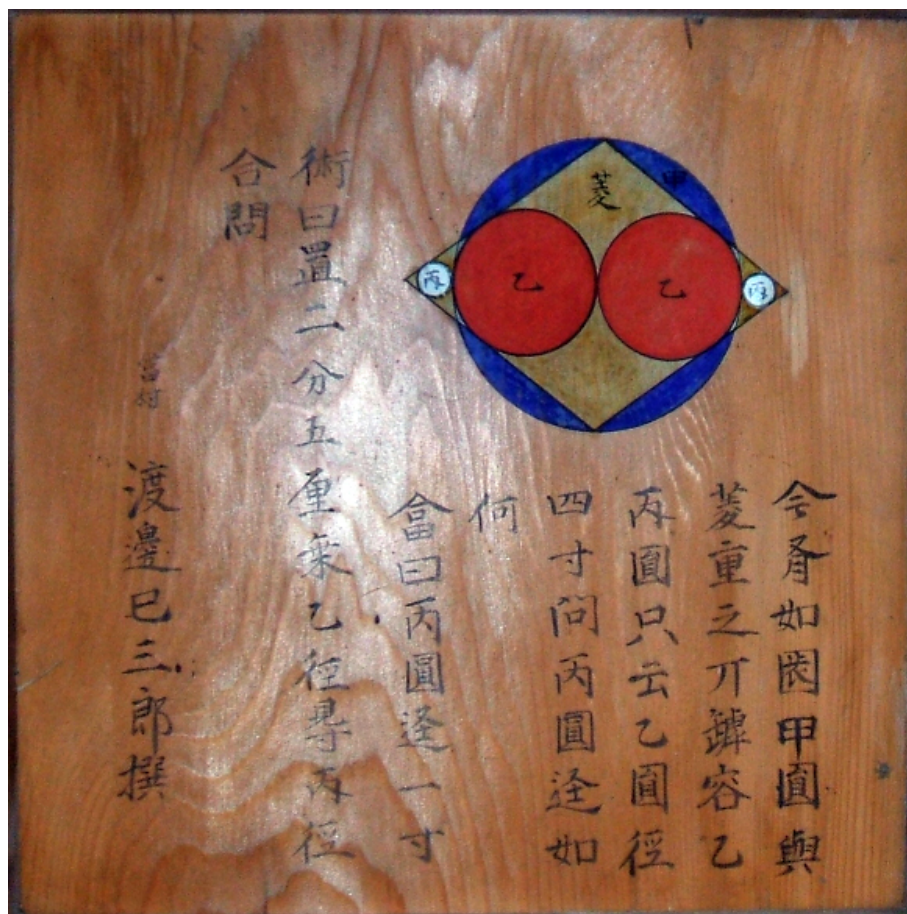 甲
菱
乙
乙
丙
丙
今有如図甲圓與
菱重之丌罅容乙
丙圓只云乙圓径
四寸問丙圓径如
何
答曰丙圓径一寸
術曰置二分五厘乗乙径得丙径
合問
渡邊巳三郎撰